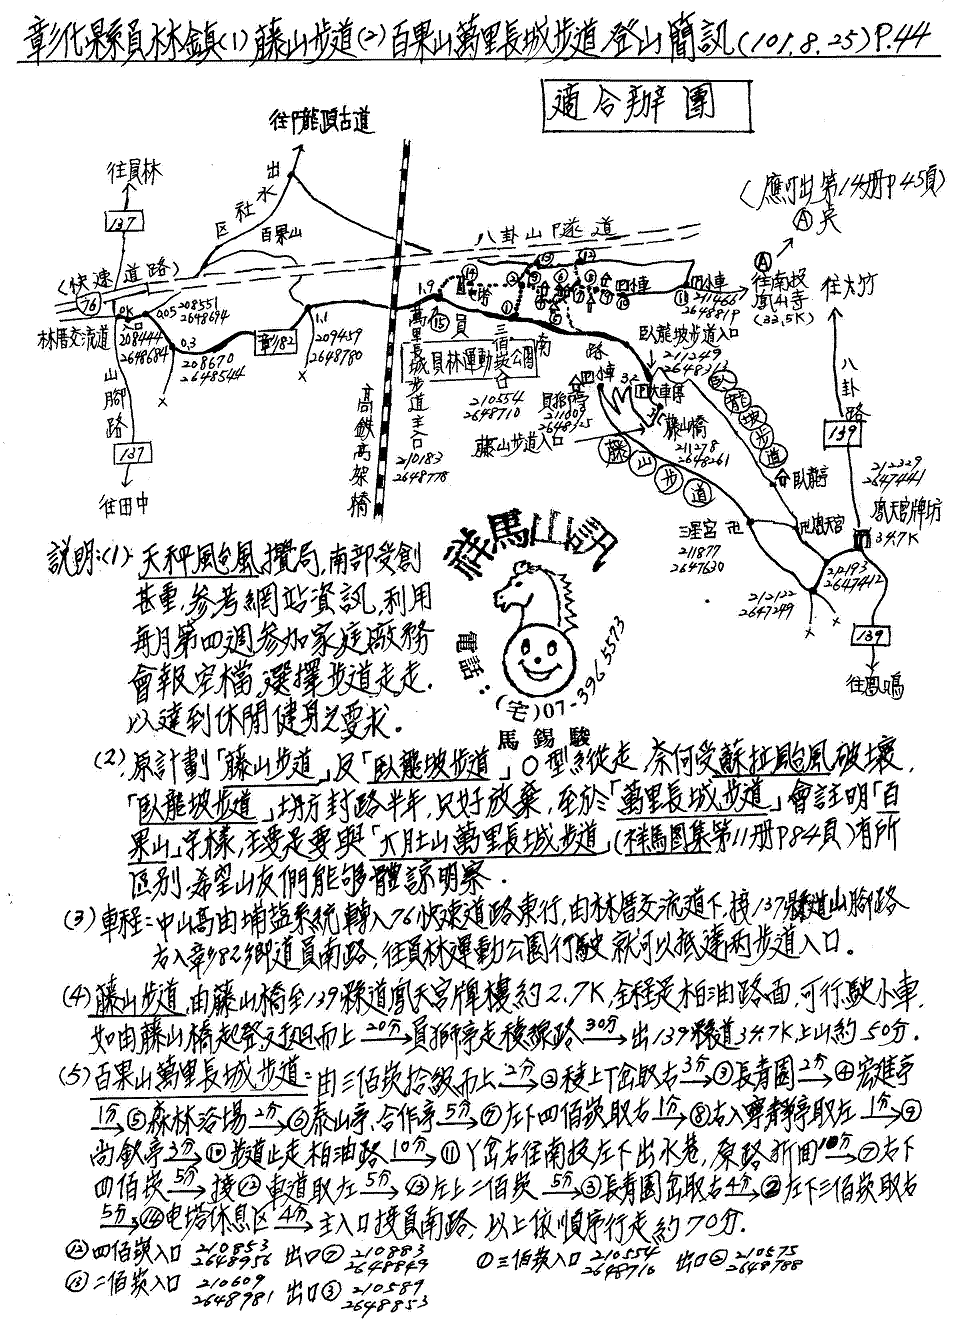 彰化縣員林鎮(1)藤山步道(2)百果山萬里長城步道登山簡訊(101.8.25)P.44
適合辦團
往門龍頂古道
往員林
137
出水社區
百果山
八卦山隧道
(應叮出第14册P45頁)
Ⓐ吳
(快速道路)
76
林厝交流道
0K
入口
208444
2648684
0.5
208551
2648694
0.3
208670
2648544
彰182
1.1
209459
2648780
1.9
⑮員
南
路
電塔
小車
⑪
211466
2648819
Ⓐ
往南投
鳳山寺
(33.5K)
往大竹
八卦路
139
山腳路
137
往田中
高鐵高架橋
萬里長城步道主入口
210183
2648778
員林運動公園
三佰崁入口
210554
2648710
小車
員獅亭
211009
2648325
藤山步道入口
臥龍坡步道入口
211249
2648313
3.2
大車停
3.5
藤山橋
211278
2648261
臥龍坡步道
藤山步道
臥龍亭
三星宮
211877
2647630
鳳天宮
212329
2647441
鳳天宮牌坊
34.7K
212193
2647412
212122
2647249
139
往鳳鳴
祥馬山訊
電話：(宅)07-3965573
馬錫駿
説明:(1)天秤風台風攪局,南部受創
甚重,參考網站資訊,利用
每月第四週參加家庭廠務
會報空檔,選擇步道走走.
以達到休閒健身之要求.
(2)原計劃「藤山步道」及「臥龍坡步道」O型縱走,奈何受蘇拉颱風破壞,
「臥龍坡步道」坍方封路半年,只好放棄,至於「萬里長城步道」會註明「百
果山」字樣,主要是要與「大肚山萬里長城步道」(祥馬圖集第11册P84頁)有所
區別,希望山友們能够體諒明察.
(3)車程:中山高由埔鹽系統轉入76快速道路東行,由林厝交流道下,接137縣道山腳路
右入彰182鄉道員南路,往員林運動公園行駛就可以抵達兩步道入口.
(4)藤山步道,由藤山橋至139縣道鳳天宮牌樓約2.7K,全程是柏油路面,可行駛小車.
如由藤山橋起登迂迴而上20分→員獅亭走稜線路30分→出139縣道34.7K上山約50分.
(5)百果山萬里長城步道:由三佰崁拾級而上2分→②稜上T岔取右3分→③長青園2分→④宏進亭
1分→⑤森林浴場2分→⑥泰山亭、合作亭5分→⑦左下四佰崁取右1分→⑧右入寧靜亭取左1分→⑨
尚欽亭2分→⑩步道止走柏油路10分→⑪Y岔右往南投左下出水巷,原路折回10分→⑦右下
四佰崁5分→接⑫車道取左5分→⑬左上二佰崁5分→③長青園岔取右4分→②左下三佰崁取右
5分→⑭電塔休息區4分→主入口接員南路,以上依順序行走約70分.
⑫四佰崁入口 210853 2648956 出口⑦ 210883 2648849 ①三佰崁入口 210554 2648710 出口② 210575 2648788
⑬二佰崁入口 210609 2648981 出口③ 210589 2648853